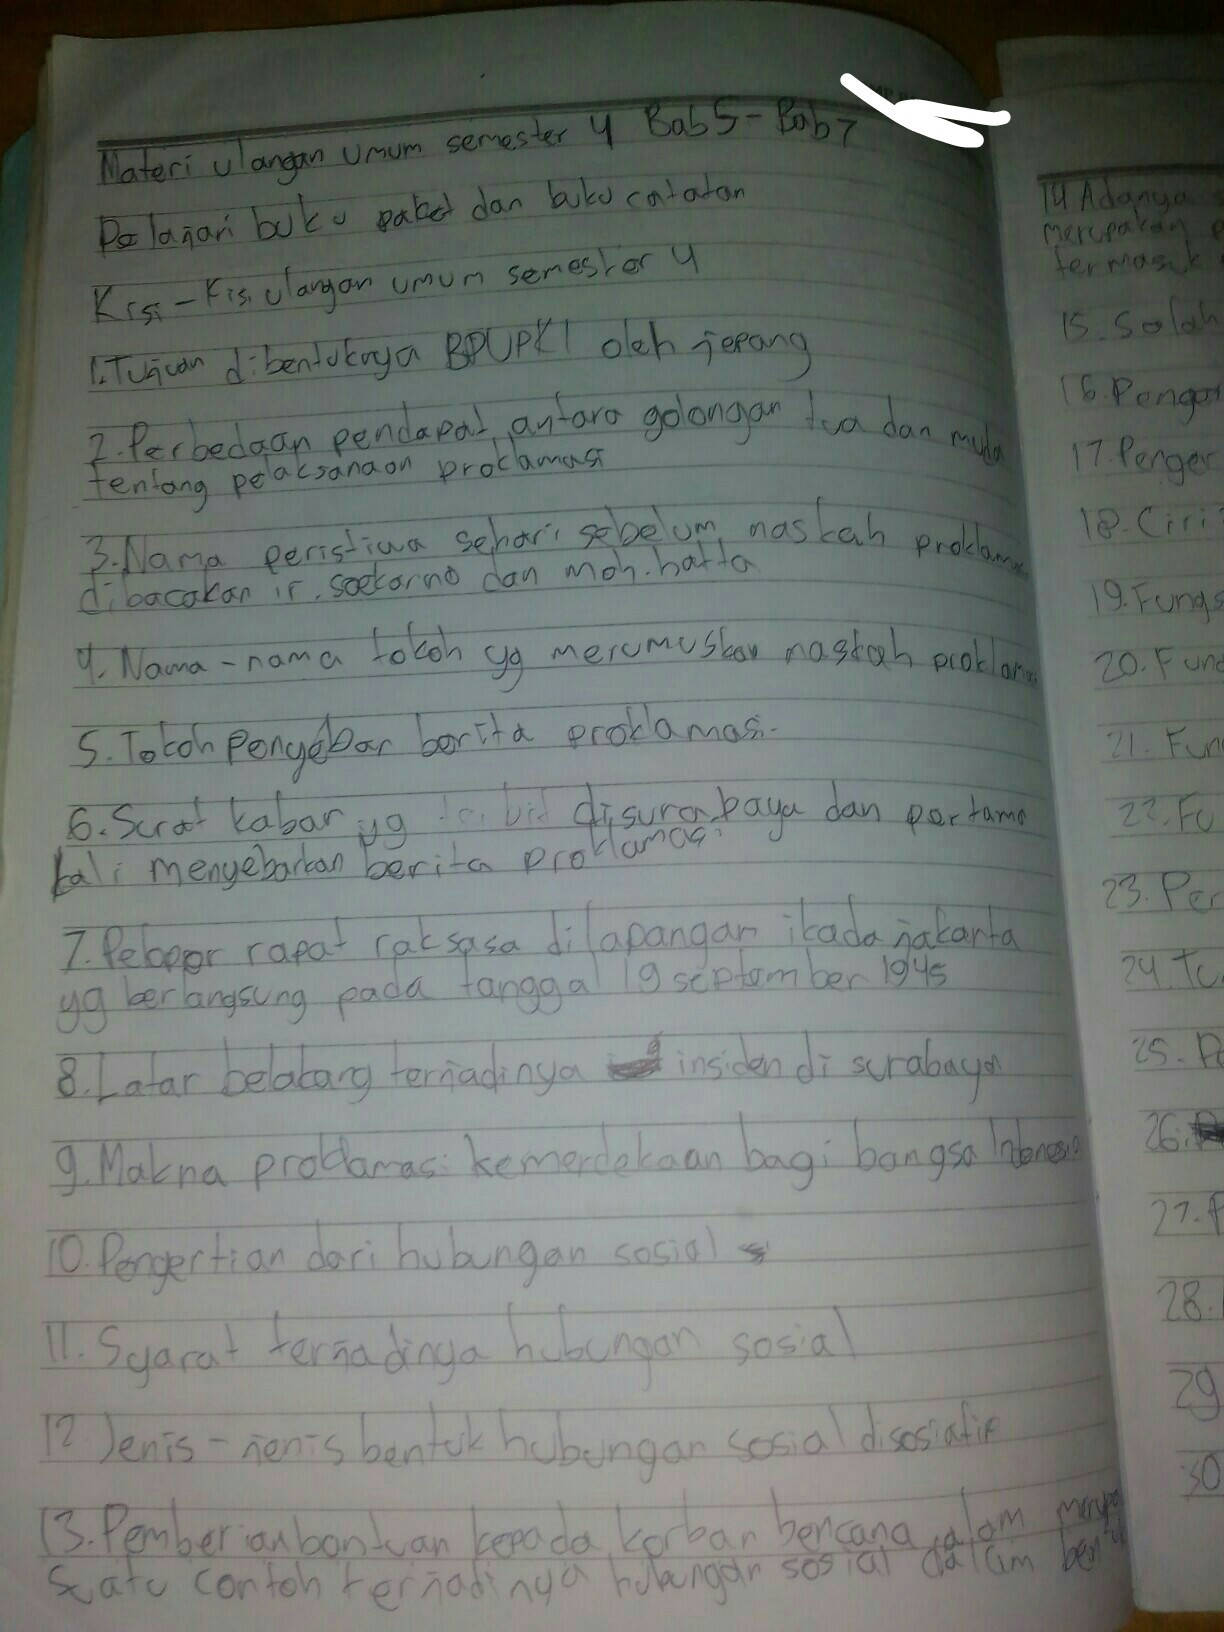 Materi ulangan umum semester 4 Bab 5 - Bab 7
Pelajari buku paket dan buku catatan
Kisi - Kisi ulangan umum semester 4
1. Tujuan dibentuknya BPUPKI oleh jepang
2. Perbedaan pendapat antara golongan tua dan muda
tentang pelaksanaan proklamasi
3. Nama peristiwa sehari sebelum naskah proklamasi
dibacakan ir. soekarno dan moh. hatta
4. Nama - nama tokoh yg merumuskan naskah proklamasi
5. Tokoh Penyebar berita proklamasi.
6. Surat kabar yg terbit disurabaya dan pertama
kali menyebarkan berita proklamasi.
7. Pelopor rapat raksasa dilapangan ikada jakarta
yg berlangsung pada tanggal 19 september 1945
8. Latar belakang terjadinya insiden di surabaya
9. Makna proklamasi kemerdekaan bagi bangsa Indonesia
10. Pengertian dari hubungan sosial
11. Syarat terjadinya hubungan sosial
12. Jenis - jenis bentuk hubungan sosial disosiatif
13. Pemberian bantuan kepada korban bencana alam
suatu contoh terjadinya hubungan sosial dalam
14 Adanya
merupakan
termasuk
15. Salah
16.
17.
18. Ciri
19.
20.
21.
22.
23.
24.
25.
26.
27.
28.
29
30